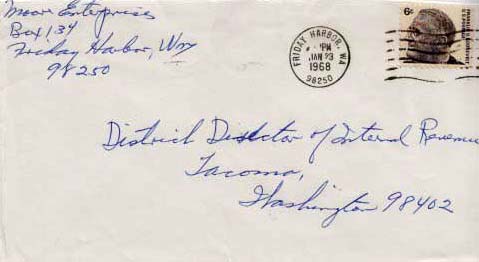 Moar Enterprises
Box 134
Friday Harbor, Wn
98250
FRIDAY HARBOR, WA
PM
JAN 23
1968
98250
6c
District Director of Internal Revenue
Tacoma,
Washington 98402